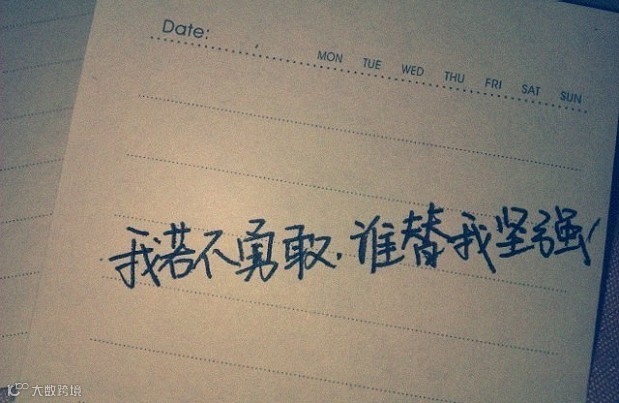 Date:
MON TUE WED THU FRI SAT SUN
我若不勇敢.谁替我坚强!
大数跨境